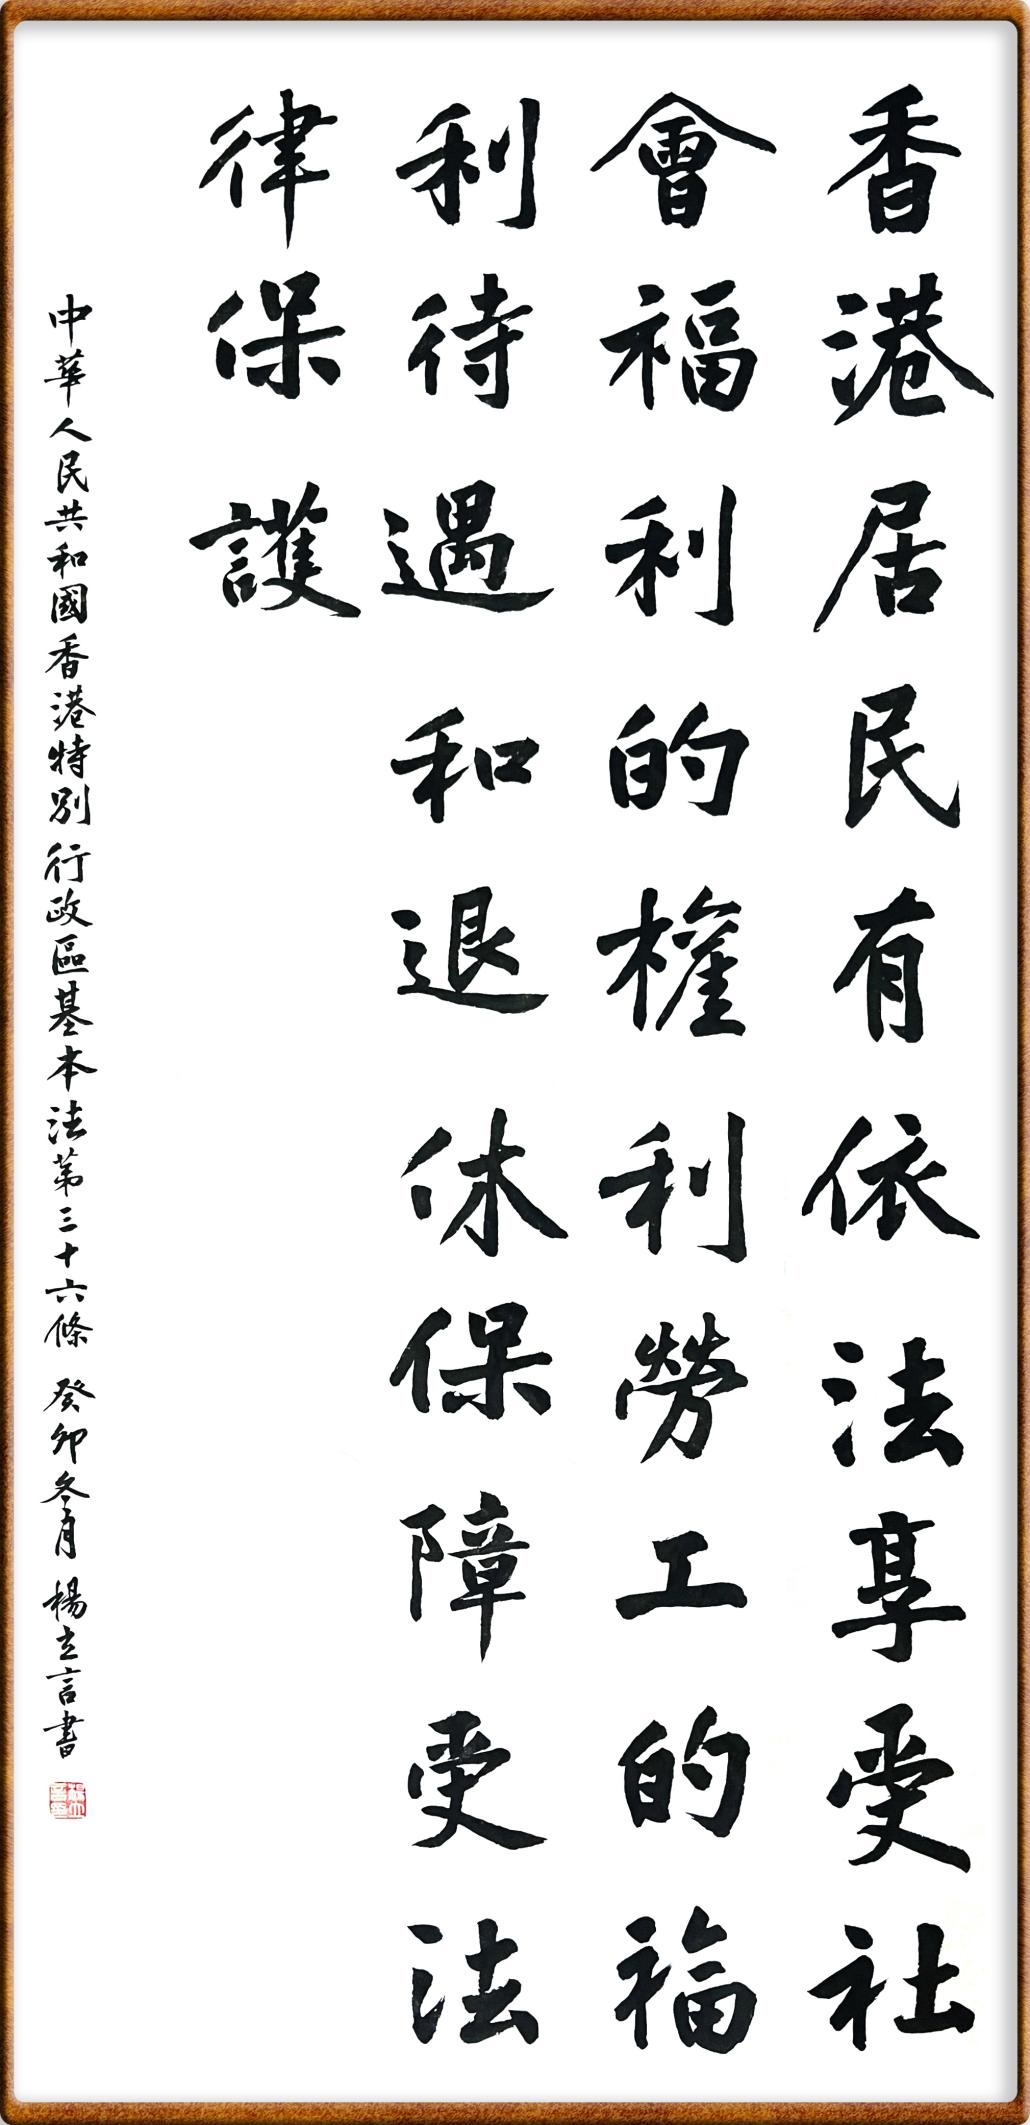 香港居民有依法享受社
會福利的權利勞工的福
利待遇和退休保障受法
律保護
中華人民共和國香港特別行政區基本法第三十六條 癸卯冬月 楊立言書